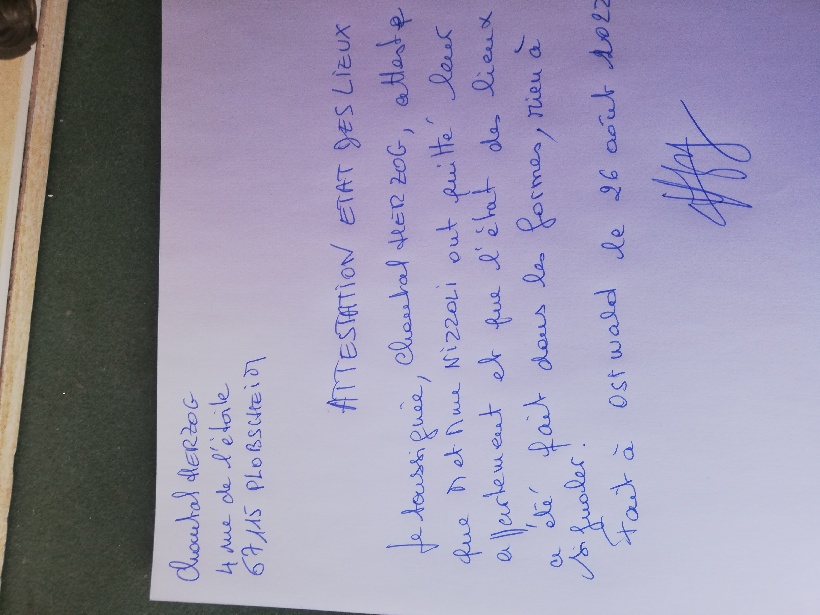 Chantal HERZOG
4 rue de l'étoile
67115 PLOBSHEIM
ATTESTATION ETAT DES LIEUX
Je soussignée, Chantal HERZOG, atteste
que M et Mme NIZZOLI ont quitté leur
appartement et que l'état des lieux
a été fait dans les formes, rien à
signaler.
Fait à Ostwald le 26 août 2022